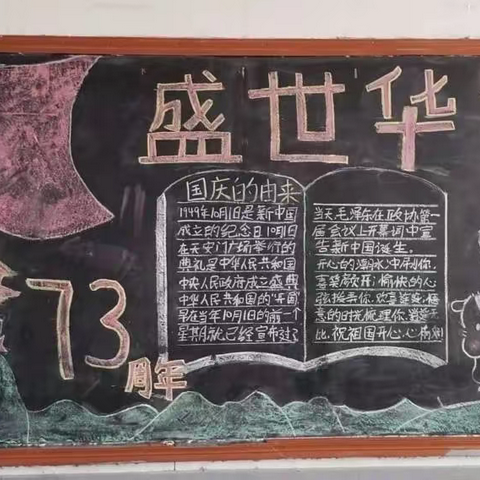 盛世华
国庆的由来
1949年10月1日是新中国
成立的纪念日10月1日
在天安门广场举行的
典礼是中华人民共和国
中央人民政府成立盛典
中华人民共和国的"开国
早在当年10月1日的前一个
星期就已经宣布过了
当天毛泽东在政协第一
届会议上开幕词中宣
告新中国诞生。
开心的潮水冲刷你，
喜菜欣开；愉快的心
弦拨弄你，欢喜连连；惬
意的时光梳理你
比，祝祖国开心心
73
周年